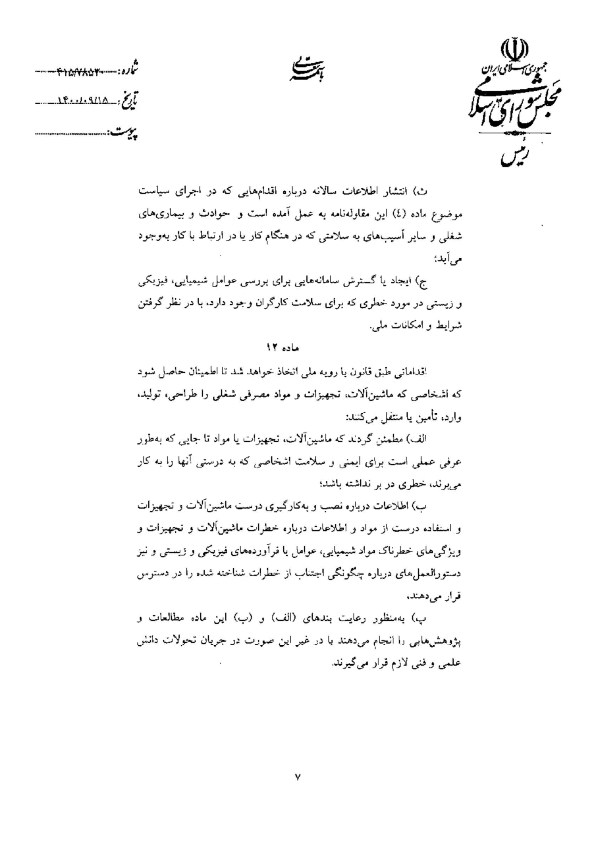 جمهوری اسلامی ایران
مجلس شورای اسلامی
رئیس
باسمه تعالی
شماره: ۴۱۵/۷۸۵۲۰
تاریخ: ۱۴۰۰/۰۹/۱۵
پیوست:
ث) انتشار اطلاعات سالانه درباره اقدام‌هایی که در اجرای سیاست
موضوع ماده (٤) این مقاوله‌نامه به عمل آمده است و حوادث و بیماری‌های
شغلی و سایر آسیب‌های به سلامتی که در هنگام کار یا در ارتباط با کار به‌وجود
می‌آید؛
ج) ایجاد یا گسترش سامانه‌هایی برای بررسی عوامل شیمیایی، فیزیکی
و زیستی در مورد خطری که برای سلامت کارگران وجود دارد، با در نظر گرفتن
شرایط و امکانات ملی.
ماده ۱۲
اقداماتی طبق قانون یا رویه ملی اتخاذ خواهد شد تا اطمینان حاصل شود
که اشخاصی که ماشین‌آلات، تجهیزات و مواد مصرفی شغلی را طراحی، تولید،
وارد، تأمین یا منتقل می‌کنند:
الف) مطمئن گردند که ماشین‌آلات، تجهیزات یا مواد تا جایی که به‌طور
عرفی عملی است برای ایمنی و سلامت اشخاصی که به درستی آنها را به کار
می‌برند، خطری در بر نداشته باشد؛
ب) اطلاعات درباره نصب و به‌کارگیری درست ماشین‌آلات و تجهیزات
و استفاده درست از مواد و اطلاعات درباره خطرات ماشین‌آلات و تجهیزات و
ویژگی‌های خطرناک مواد شیمیایی، عوامل یا فرآورده‌های فیزیکی و زیستی و نیز
دستورالعمل‌های درباره چگونگی اجتناب از خطرات شناخته شده را در دسترس
قرار می‌دهند،
پ) به‌منظور رعایت بندهای (الف) و (ب) این ماده مطالعات و
پژوهش‌هایی را انجام می‌دهند یا در غیر این صورت در جریان تحولات دانش
علمی و فنی لازم قرار می‌گیرند.
۷